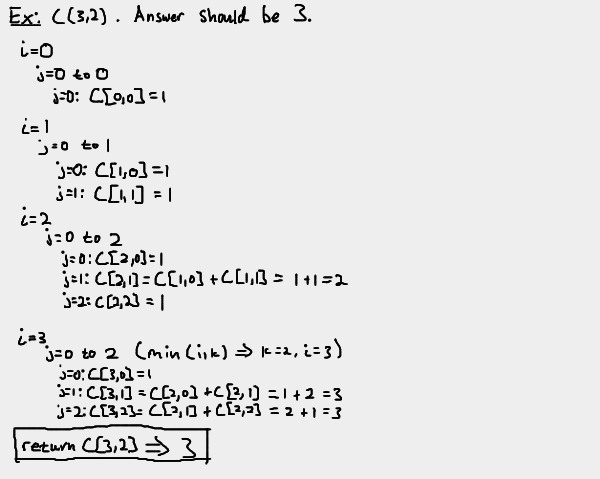 Ex: C(3,2). Answer should be 3.
i=0
j=0 to 0
j=0: C[0,0]=1
i=1
j=0 to 1
j=0: C[1,0]=1
j=1: C[1,1] = 1
i=2
j=0 to 2
j=0: C[2,0]=1
j=1: C[2,1]=C[1,0]+C[1,1] = 1+1=2
j=2: C[2,2] = 1
i=3
j=0 to 2 (min(i,k) ⇒ k=2, i=3)
j=0: C[3,0]=1
j=1: C[3,1] = C[2,0] + C[2,1] = 1+2 = 3
j=2: C[3,2]= C[2,1] + C[2,2] = 2+1=3
return C[3,2] ⇒ 3